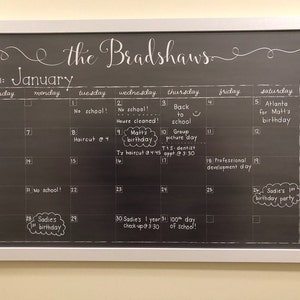 the Bradshaws
: January
day monday tuesday wednesday thursday friday saturday
1 2 3 4 5
No school!
No school!
House cleaned!
Back
to
school
Atlanta
for Matt's
birthday
7 8 9 10 11 12
Haircut @ 4
Matt's
birthday
Ty haircut @ 4:45
Group
picture day
TJS dentist
appt @ 3:30
14 15 16 17 18 19
Professional
development day
21 22 23 24 25 26
No school!
Sadie's 1st
birthday party
28 29 30 31
Sadie's
1st
birthday
Sadie's 1 year
check-up @ 3:30
100th day
of school!